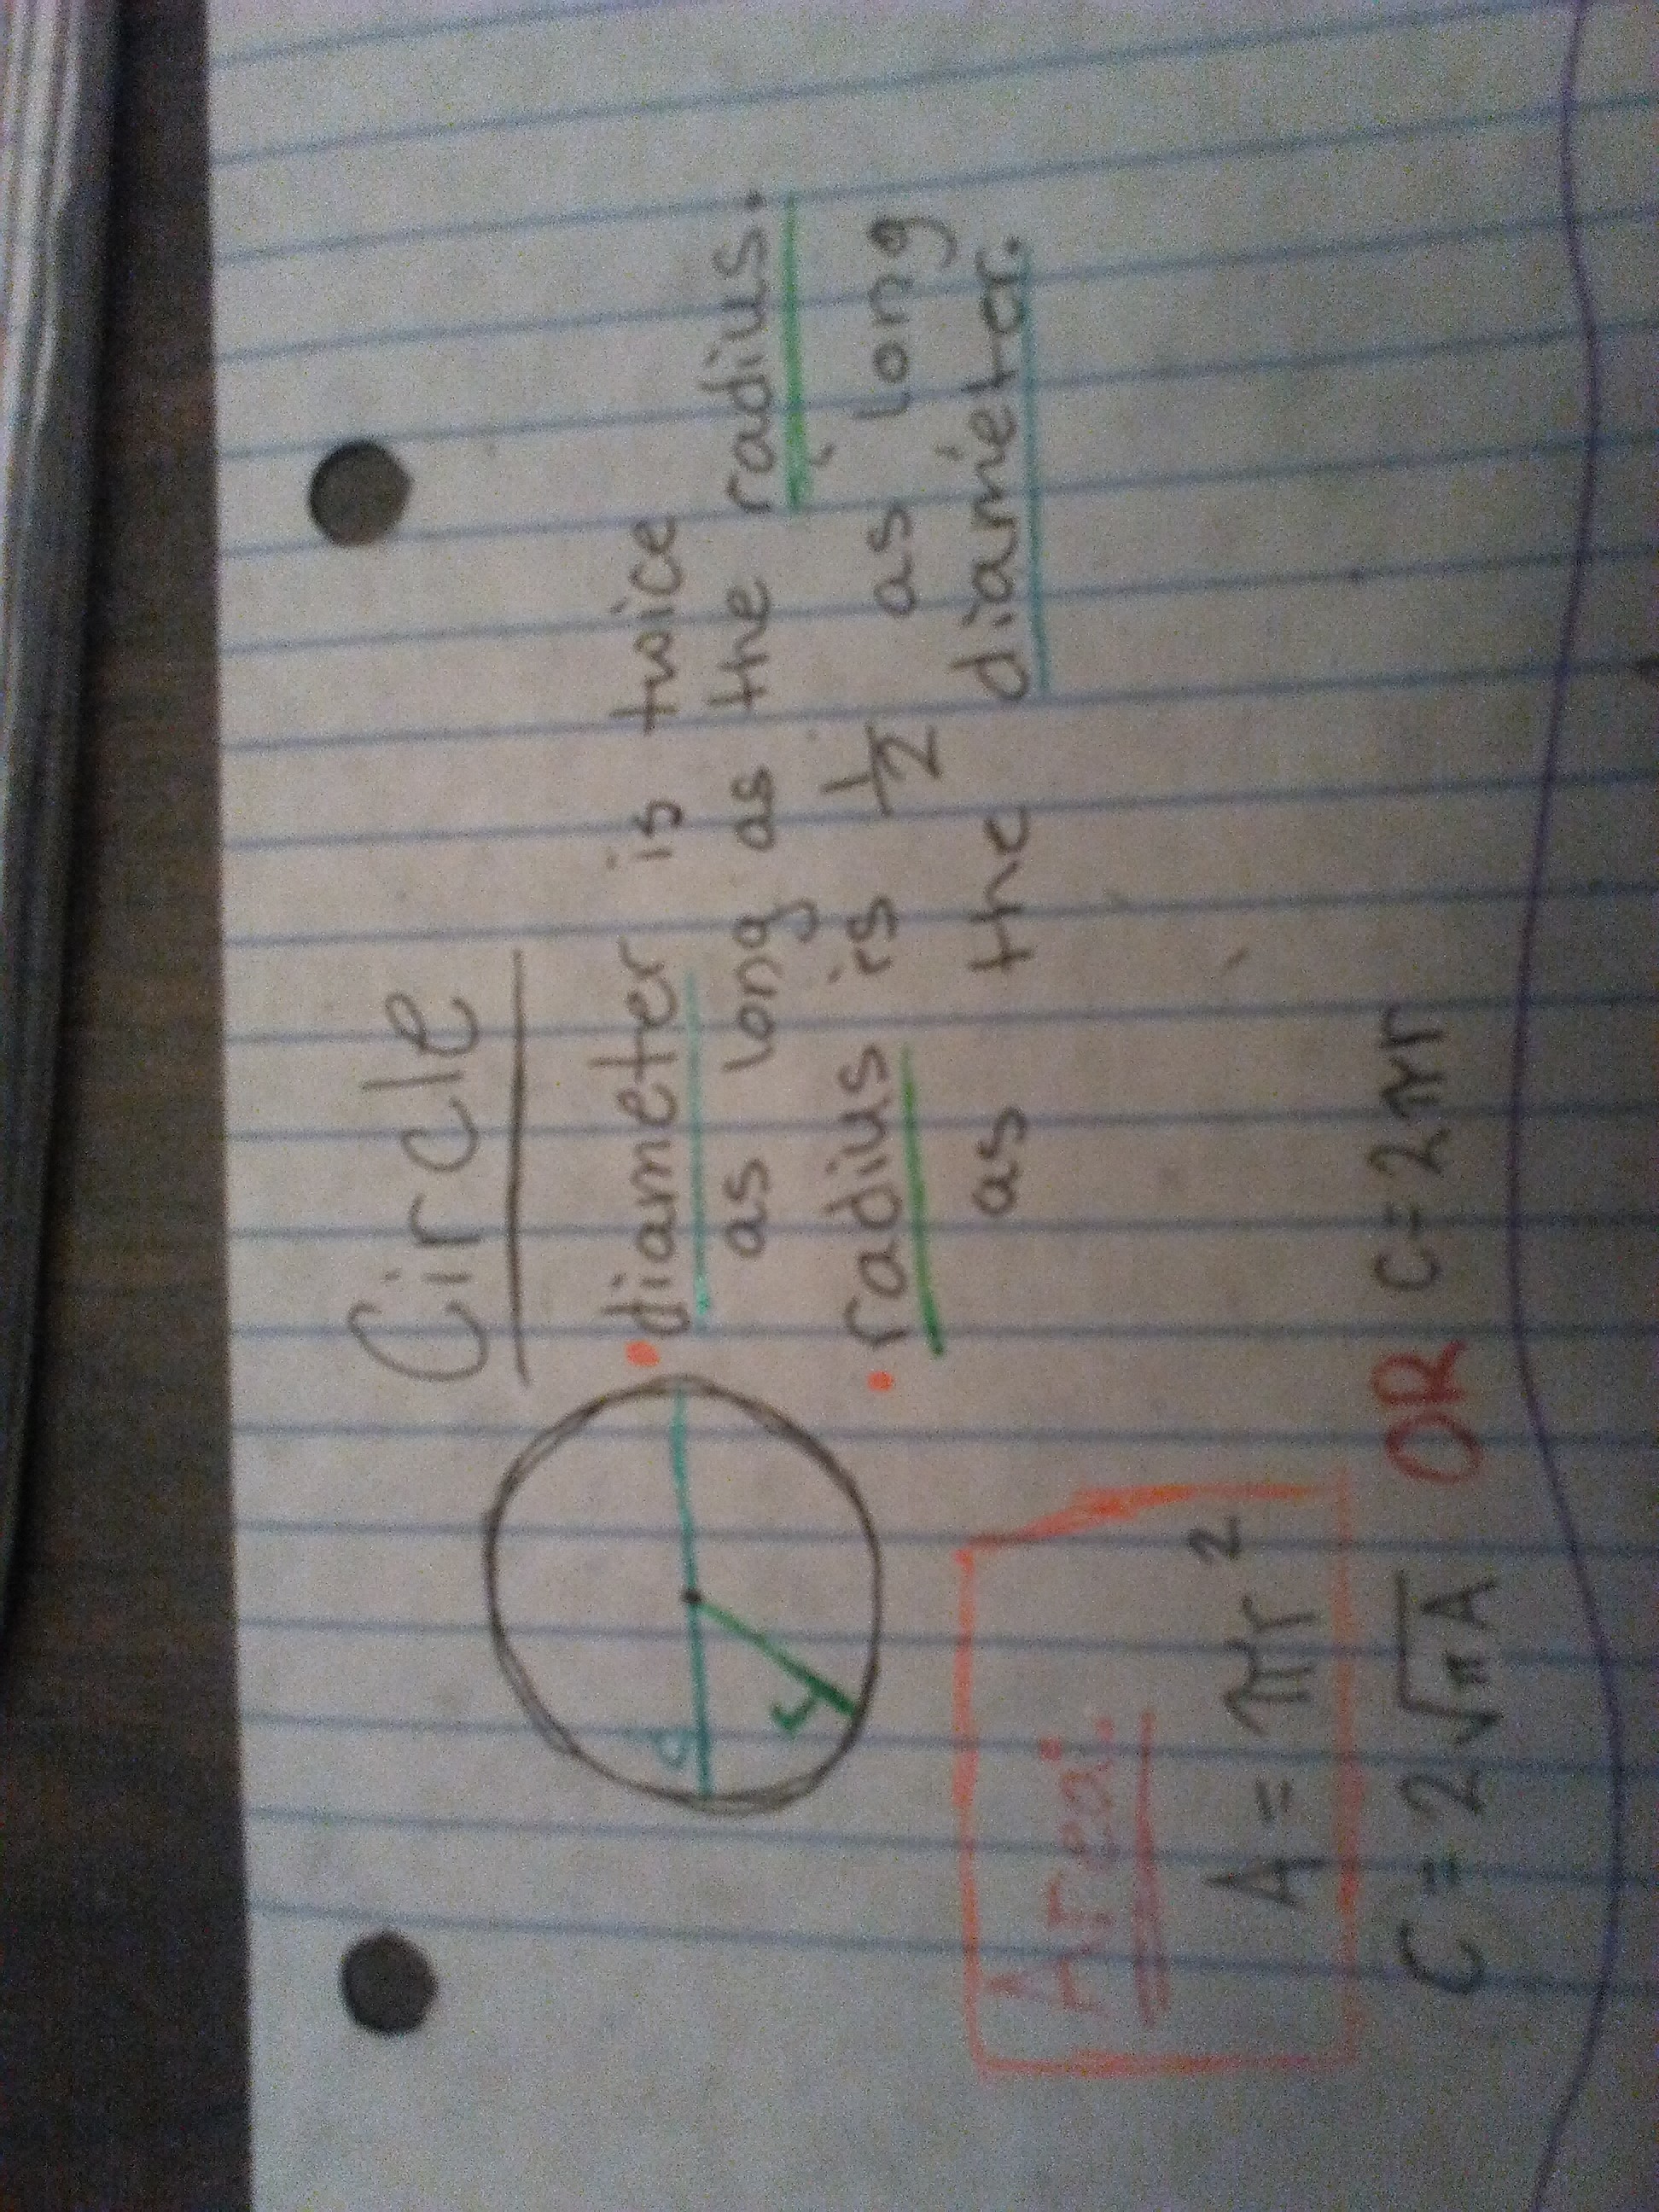 Circle
• diameter is twice
as long as the radius.
• radius is 1/2 as long
as the diameter.
d
r
Area:
A = πr²
C = 2√πA OR C = 2πr